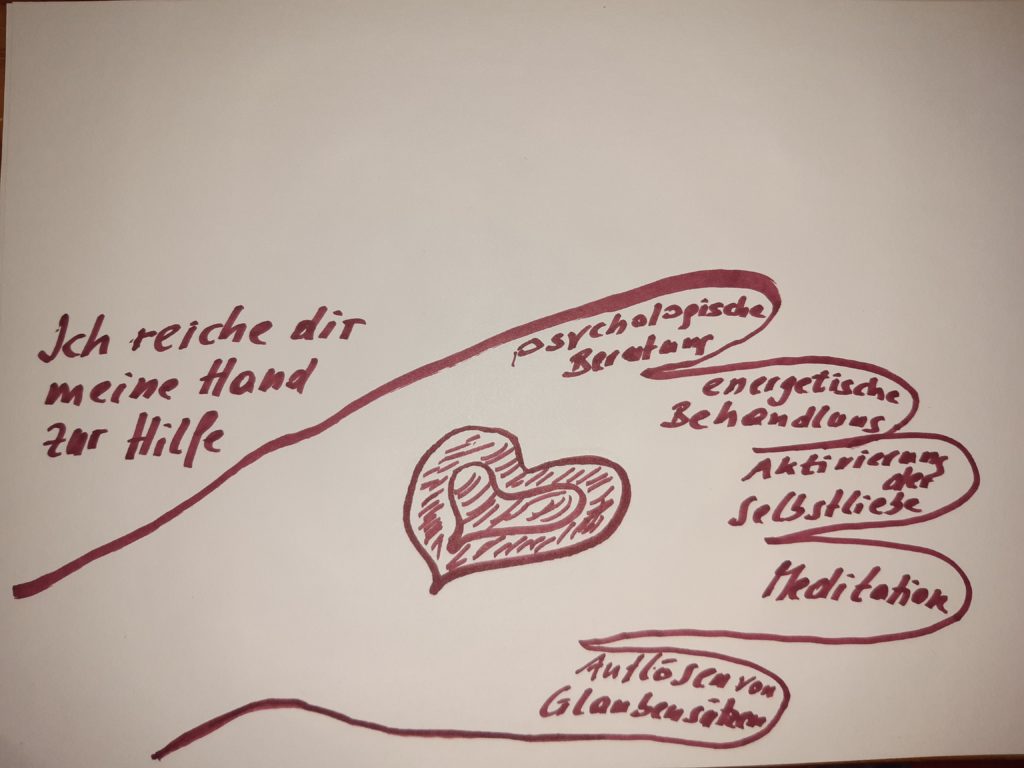 Ich reiche dir
meine Hand
zur Hilfe
psychologische
Beratung
energetische
Behandlung
Aktivierung
der
Selbstliebe
Meditation
Auflösen von
Glaubensätzen